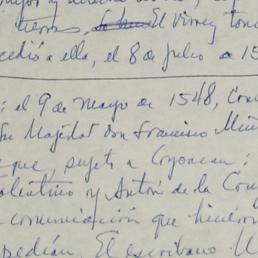 y derecho
tierras, El Virrey tom
cedió a ella, el 8 de Julio de 15
: el 9 de Mayo de 1548, Con
Su Majestad don Francisco Muñ
que, sujeto a Coyoacan:
olentino y Antón de la Con
comunicación que hicieron
pedían. El escribano M